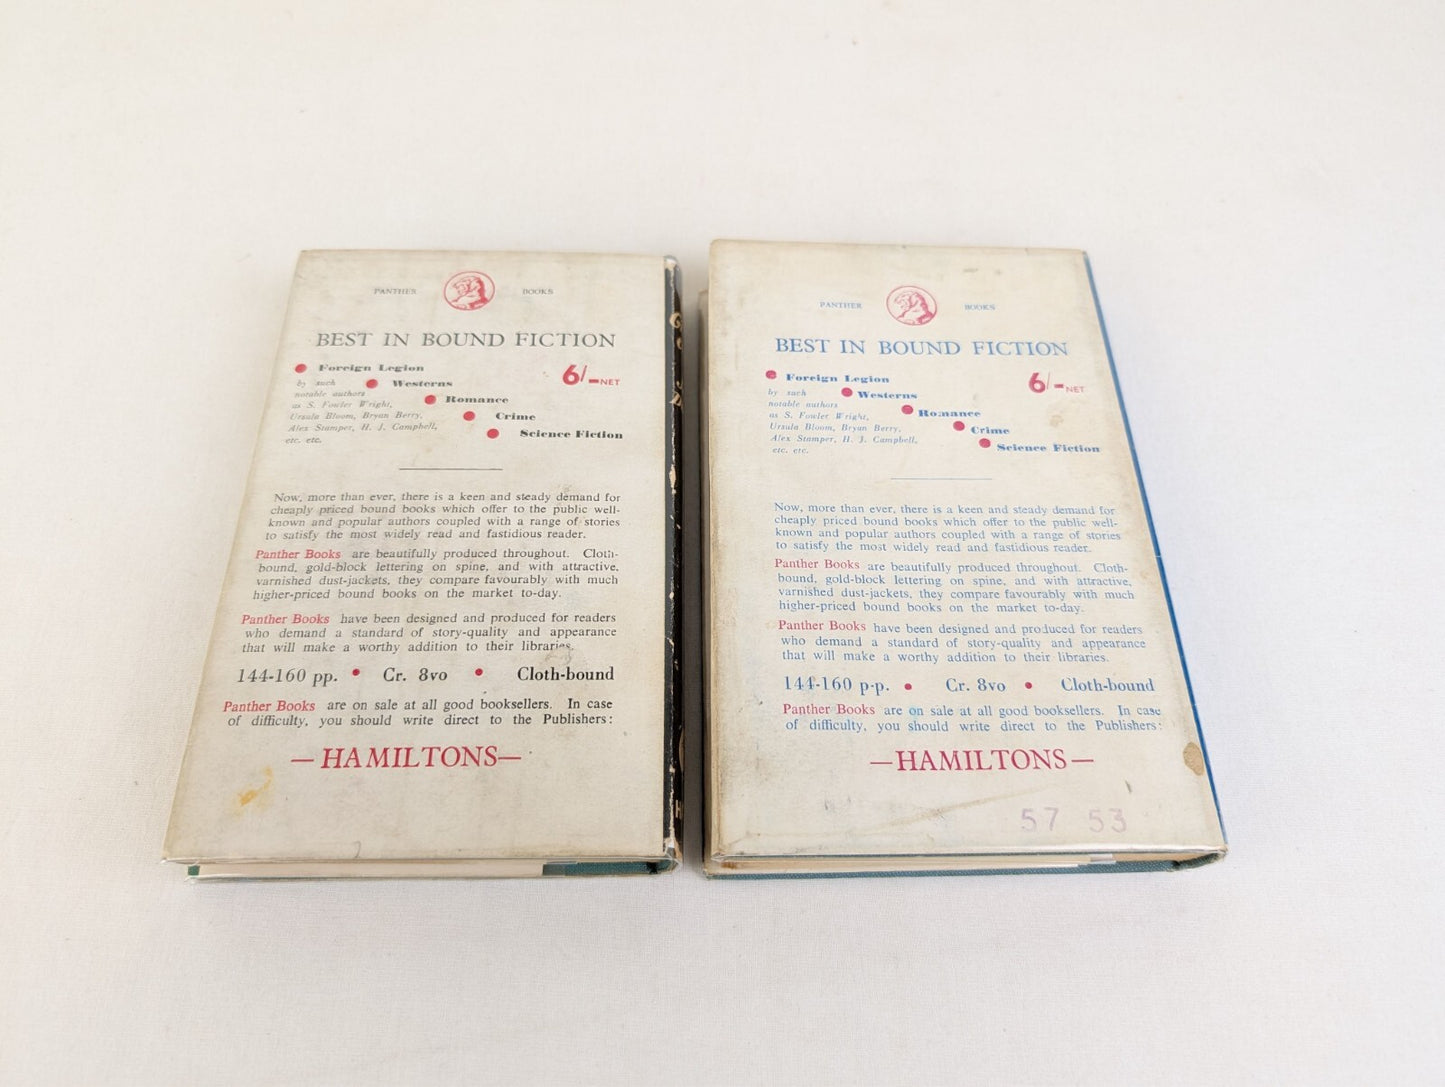 PANTHER BOOKS
BEST IN BOUND FICTION
Foreign Legion
by such Westerns
notable authors Romance
as S. Fowler Wright,
Ursula Bloom, Bryan Berry, Crime
Alex Stamper, H. J. Campbell,
etc. etc. Science Fiction
6/-NET
Now, more than ever, there is a keen and steady demand for
cheaply priced bound books which offer to the public well-
known and popular authors coupled with a range of stories
to satisfy the most widely read and fastidious reader.
Panther Books are beautifully produced throughout. Cloth-
bound, gold-block lettering on spine, and with attractive,
varnished dust-jackets, they compare favourably with much
higher-priced bound books on the market to-day.
Panther Books have been designed and produced for readers
who demand a standard of story-quality and appearance
that will make a worthy addition to their libraries.
144-160 pp. • Cr. 8vo • Cloth-bound
Panther Books are on sale at all good booksellers. In case
of difficulty, you should write direct to the Publishers:
—HAMILTONS—
PANTHER BOOKS
BEST IN BOUND FICTION
Foreign Legion
by such Westerns
notable authors
as S. Fowler Wright, Romance
Ursula Bloom, Bryan Berry, Crime
Alex Stamper, H. J. Campbell,
etc. etc. Science Fiction
6/-NET
Now, more than ever, there is a keen and steady demand for
cheaply priced bound books which offer to the public well-
known and popular authors coupled with a range of stories
to satisfy the most widely read and fastidious reader.
Panther Books are beautifully produced throughout. Cloth-
bound, gold-block lettering on spine, and with attractive,
varnished dust-jackets, they compare favourably with much
higher-priced bound books on the market to-day.
Panther Books have been designed and produced for readers
who demand a standard of story-quality and appearance
that will make a worthy addition to their libraries.
144-160 p.p. • Cr. 8vo • Cloth-bound
Panther Books are on sale at all good booksellers. In case
of difficulty, you should write direct to the Publishers:
—HAMILTONS—
57 53